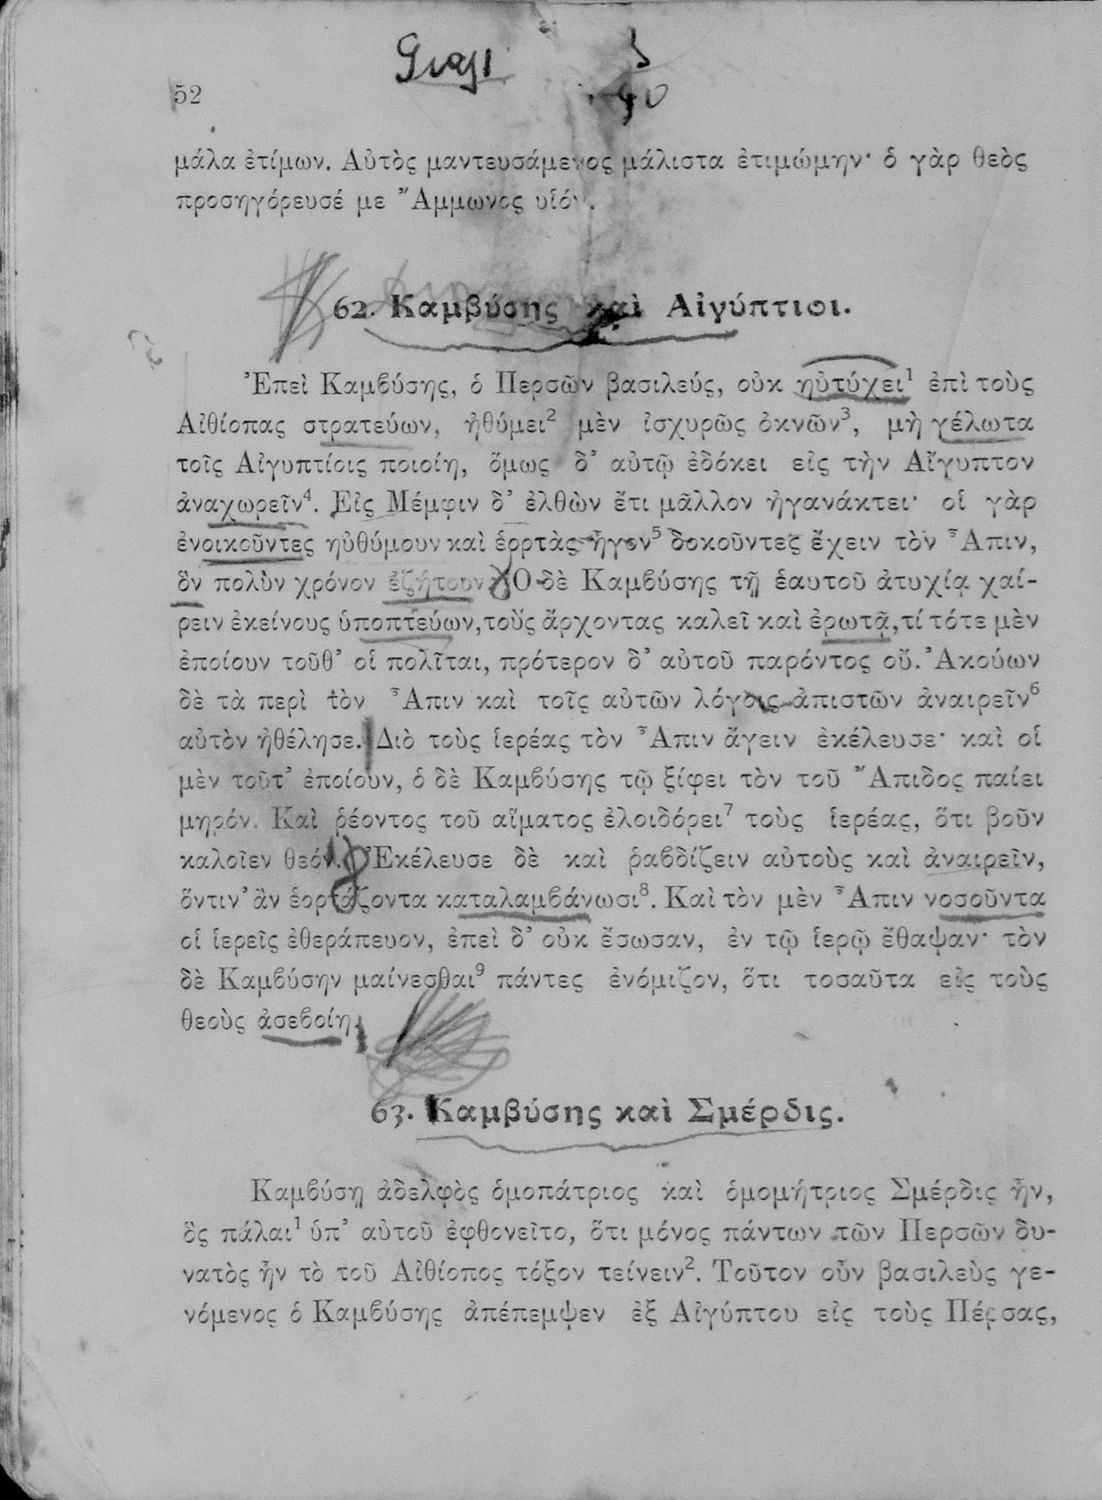 52
μάλα ἐτίμων. Αὐτὸς μαντευσάμενος μάλιστα ἐτιμώμην· ὁ γὰρ θεὸς
προσηγόρευσέ με Ἄμμωνος υἱόν.
62. Καμβύσης καὶ Αἰγύπτιοι.
Ἐπεὶ Καμβύσης, ὁ Περσῶν βασιλεύς, οὐκ ηὐτύχει¹ ἐπὶ τοὺς
Αἰθίοπας στρατεύων, ἠθύμει² μὲν ἰσχυρῶς ὀκνῶν³, μὴ γέλωτα
τοῖς Αἰγυπτίοις ποιοίη, ὅμως δ' αὐτῷ ἐδόκει εἰς τὴν Αἴγυπτον
ἀναχωρεῖν⁴. Εἰς Μέμφιν δ' ἐλθὼν ἔτι μᾶλλον ἠγανάκτει· οἱ γὰρ
ἐνοικοῦντες ηὐθύμουν καὶ ἑορτὰς ἦγον⁵ δοκοῦντες ἔχειν τὸν Ἆπιν,
ὃν πολὺν χρόνον ἐζήτουν. Ὁ δὲ Καμβύσης τῇ ἑαυτοῦ ἀτυχίᾳ χαί-
ρειν ἐκείνους ὑποπτεύων, τοὺς ἄρχοντας καλεῖ καὶ ἐρωτᾷ, τί τότε μὲν
ἐποίουν τοῦθ' οἱ πολῖται, πρότερον δ' αὐτοῦ παρόντος οὔ. Ἀκούων
δὲ τὰ περὶ τὸν Ἆπιν καὶ τοῖς αὐτῶν λόγοις ἀπιστῶν ἀναιρεῖν⁶
αὐτὸν ἠθέλησε. Διὸ τοὺς ἱερέας τὸν Ἆπιν ἄγειν ἐκέλευσε· καὶ οἱ
μὲν τοῦτ' ἐποίουν, ὁ δὲ Καμβύσης τῷ ξίφει τὸν τοῦ Ἄπιδος παίει
μηρόν. Καὶ ῥέοντος τοῦ αἵματος ἐλοιδόρει⁷ τοὺς ἱερέας, ὅτι βοῦν
καλοῖεν θεόν. Ἐκέλευσε δὲ καὶ ῥαβδίζειν αὐτοὺς καὶ ἀναιρεῖν,
ὅντιν' ἂν ἑορτάζοντα καταλαμβάνωσι⁸. Καὶ τὸν μὲν Ἆπιν νοσοῦντα
οἱ ἱερεῖς ἐθεράπευον, ἐπεὶ δ' οὐκ ἔσωσαν, ἐν τῷ ἱερῷ ἔθαψαν· τὸν
δὲ Καμβύσην μαίνεσθαι⁹ πάντες ἐνόμιζον, ὅτι τοσαῦτα εἰς τοὺς
θεοὺς ἀσεβοίη.
63. Καμβύσης καὶ Σμέρδις.
Καμβύσῃ ἀδελφὸς ὁμοπάτριος καὶ ὁμομήτριος Σμέρδις ἦν,
ὃς πάλαι¹ ὑπ' αὐτοῦ ἐφθονεῖτο, ὅτι μόνος πάντων τῶν Περσῶν δυ-
νατὸς ἦν τὸ τοῦ Αἰθίοπος τόξον τείνειν². Τοῦτον οὖν βασιλεὺς γε-
νόμενος ὁ Καμβύσης ἀπέπεμψεν ἐξ Αἰγύπτου εἰς τοὺς Πέρσας,